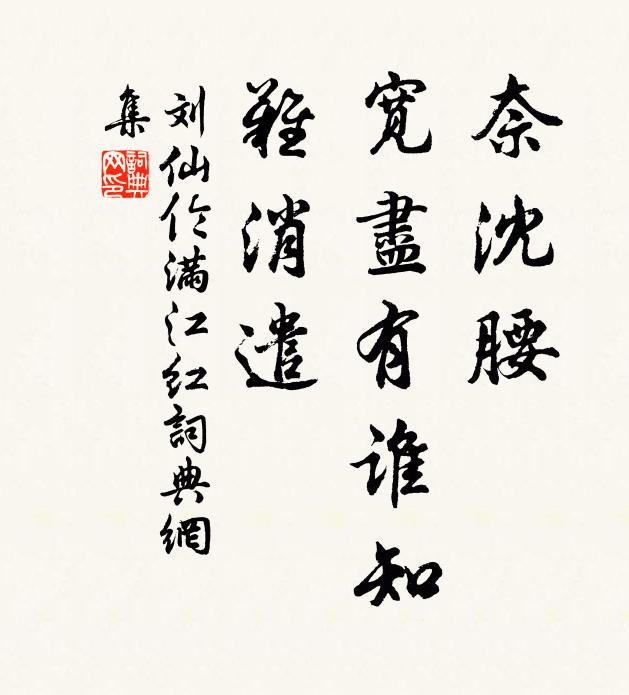 奈沈腰
寬盡有谁知
難消遣
刘仙伦滿江红詞典網
集
詞典网印